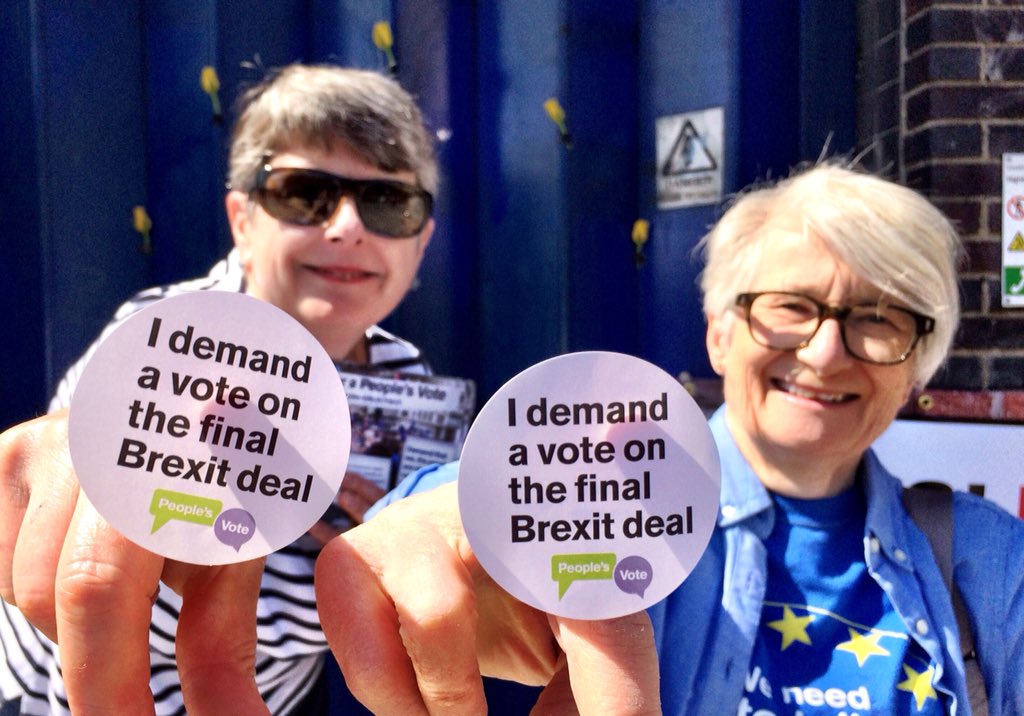 I demand
a vote on
the final
Brexit deal
People's
Vote
I demand
a vote on
the final
Brexit deal
People's
Vote
a People's Vote
need